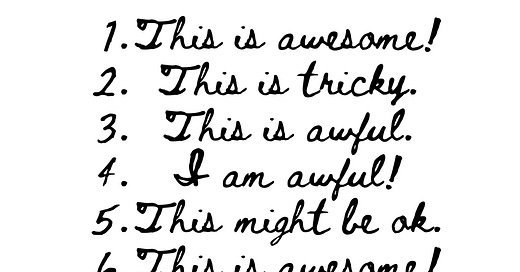 1. This is awesome!
2. This is tricky.
3. This is awful.
4. I am awful!
5. This might be ok.
6. This is awesome!